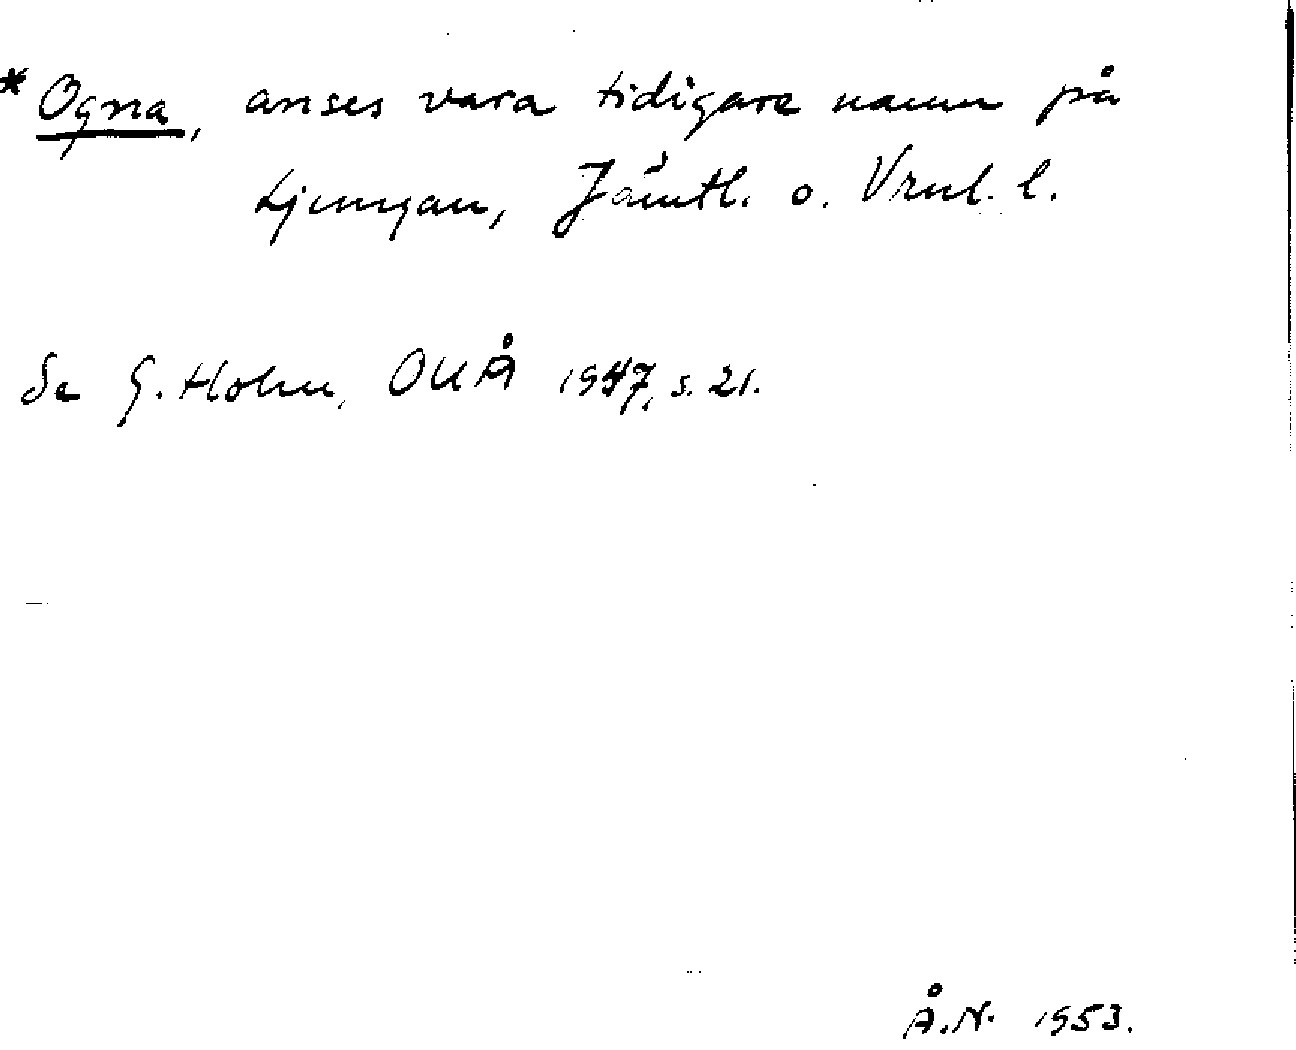 *Ogna, anses vara tidigare namn på
Ljungan, Jämtl. o. Vrnl. l.
Se G. Holm, OUÅ 1947, s. 21.
Å.N. 1953.